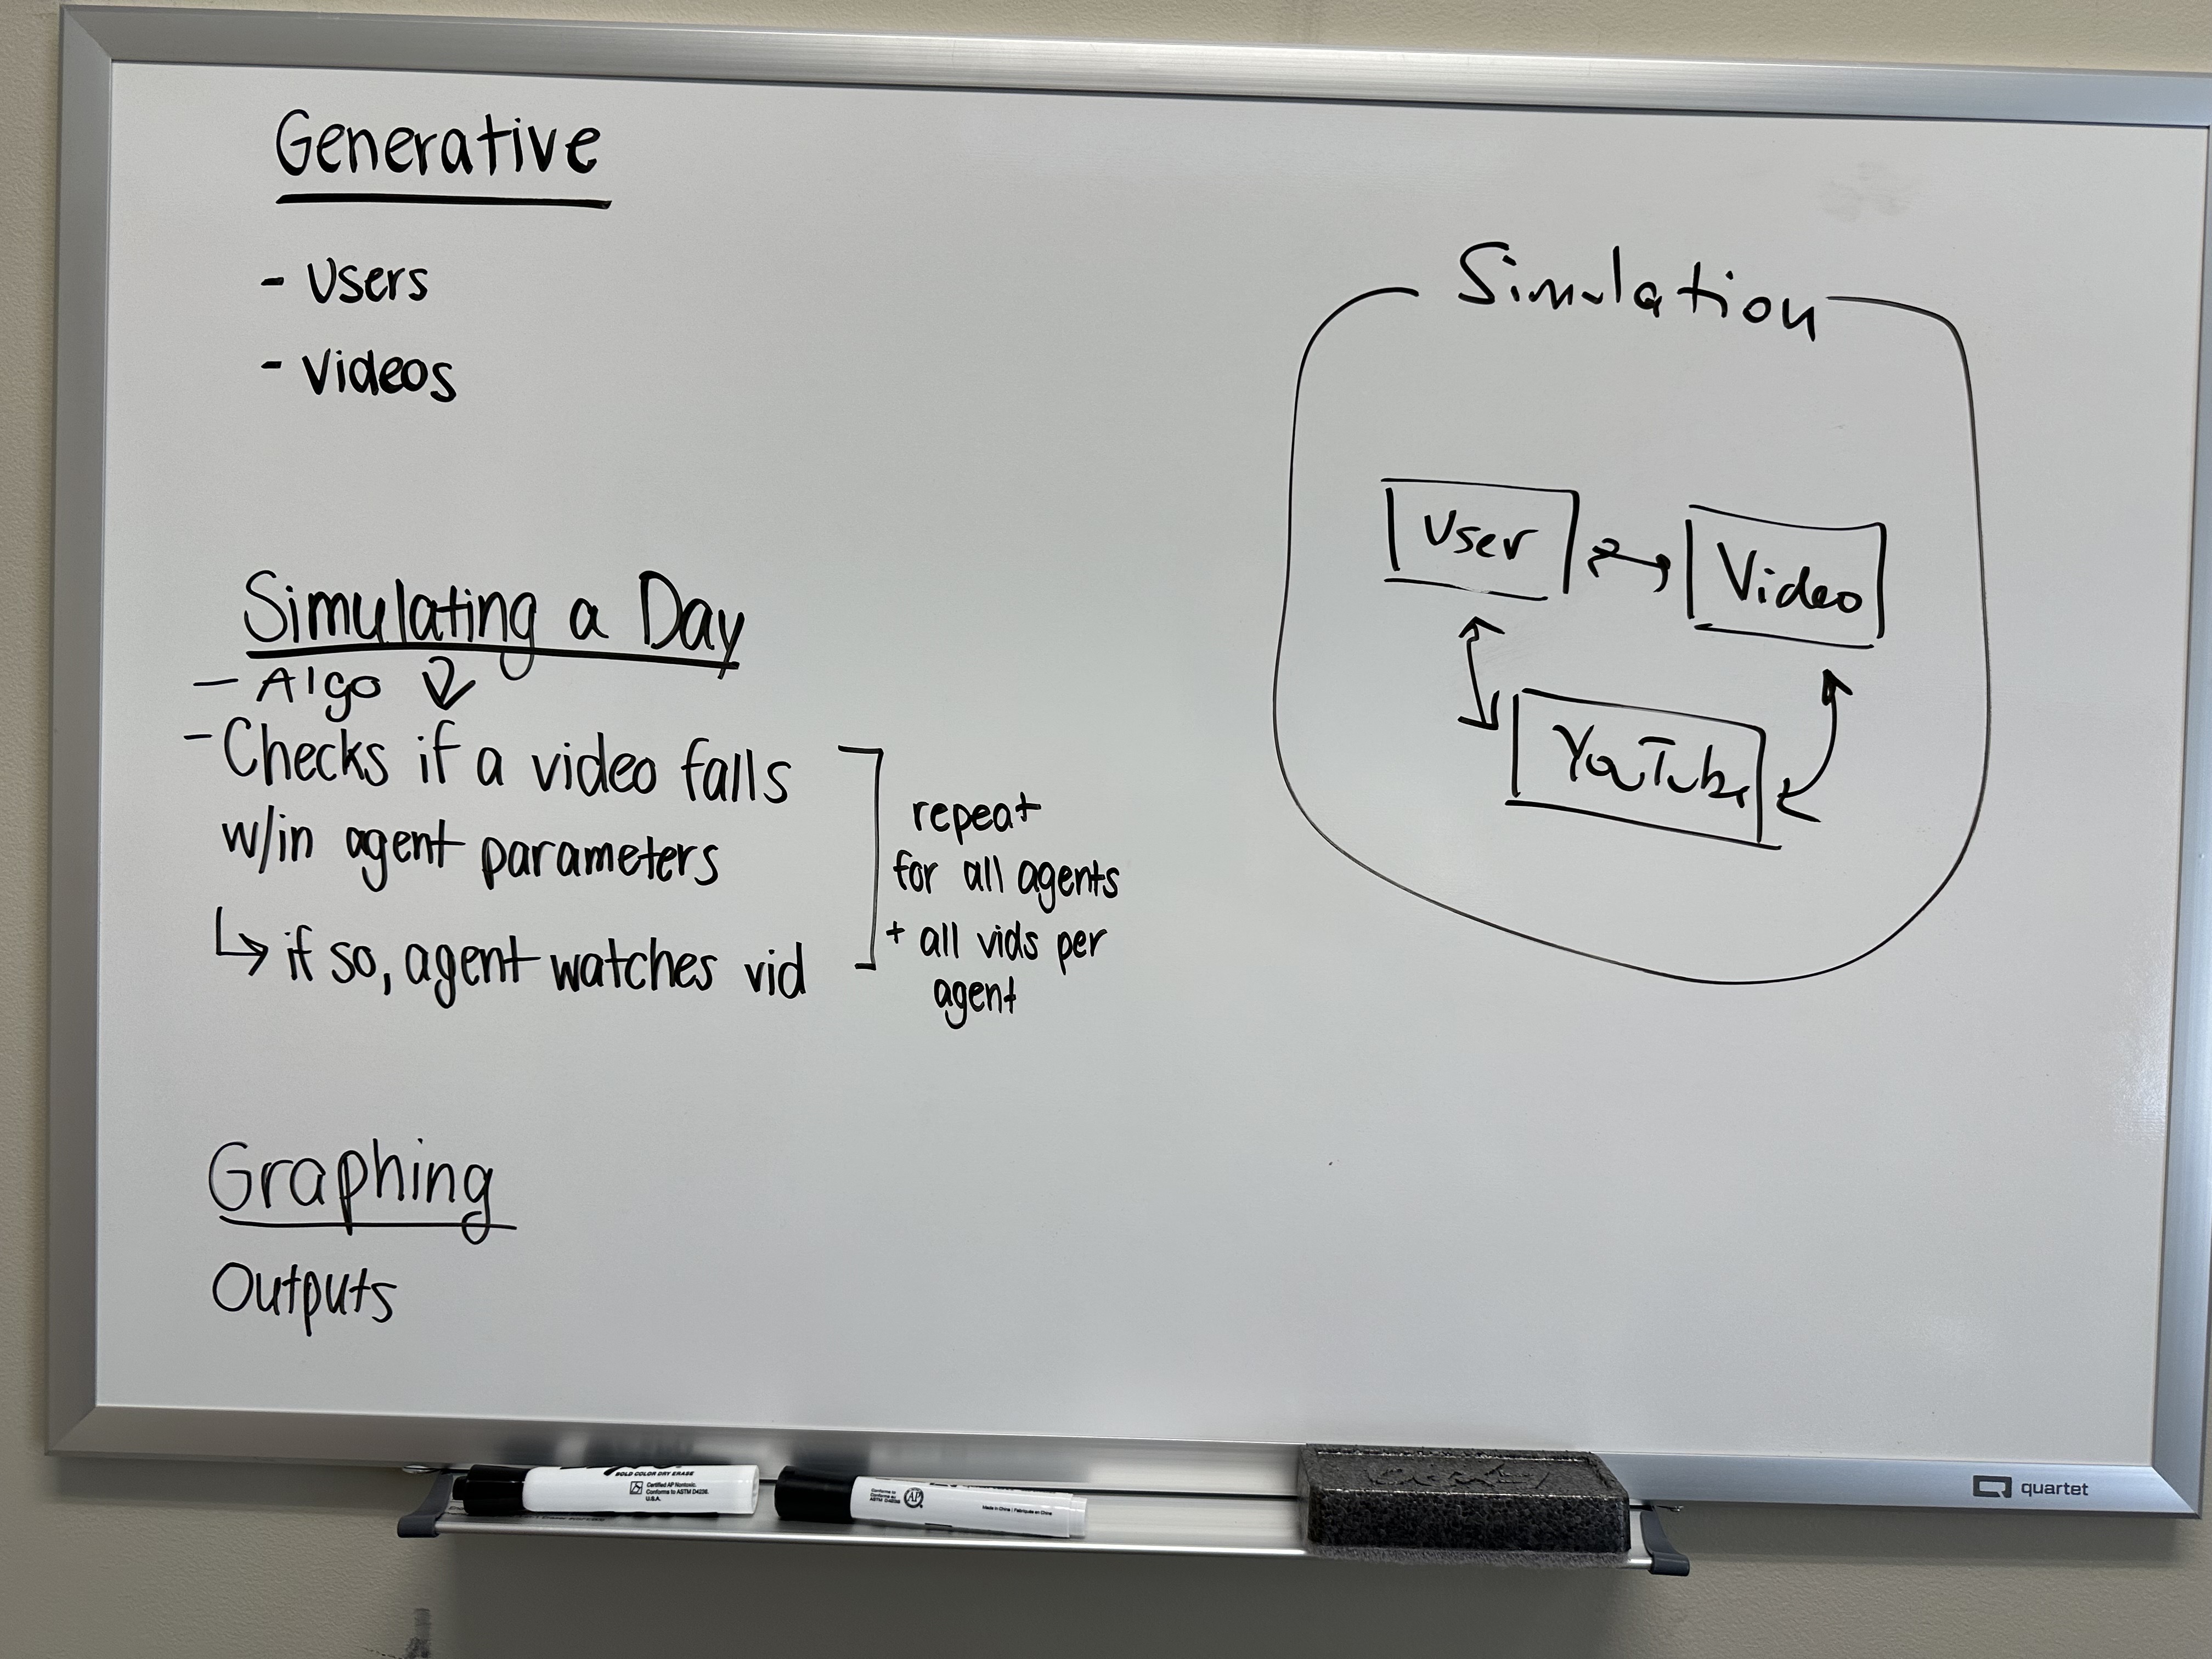 Generative
- Users
- Videos
Simulating a Day
- Algo
- Checks if a video falls
w/in agent parameters
↳ if so, agent watches vid
repeat
for all agents
+ all vids per
agent
Graphing
Outputs
Simulation
User
Video
YouTube
BOLD COLOR DRY ERASE
Certified AP Nontoxic.
Conforms to ASTM D4236.
U.S.A.
Conforms to
ASTM D4236
AP
Made in China / Fabriqués en Chine
quartet